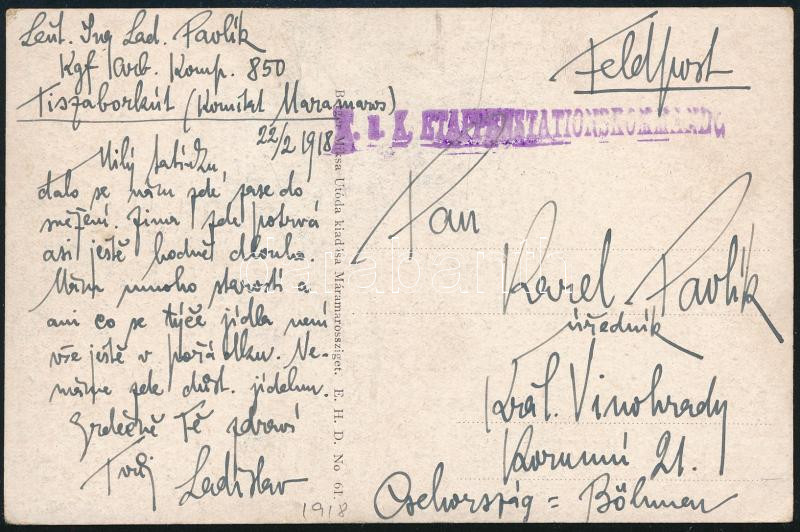 Leut. Ing Lad. Pavlík
Kgf Arb. Komp. 850
Tiszaborkút (Komitat Maramaros)
22/2 1918
Milý tatínku,
dalo se nám zde zase do
sněžení. Zima zde potrvá
asi ještě hodně dlouho.
Mám mnoho starostí a
ani co se týče jídla není
vše ještě v pořádku. Ne-
máme zde důst. jídelnu.
Srdečně Tě zdraví
Tvůj Ladislav
1918
Berger Miksa Utóda kiadása Máramarossziget. E. H. D. No 61.
Feldpost
K. u. K. ETAPPENSTATIONSKOMMANDO
Pan
Karel Pavlík
úředník
Král. Vinohrady
Korunní 21.
Csehország = Böhmen
darabanth